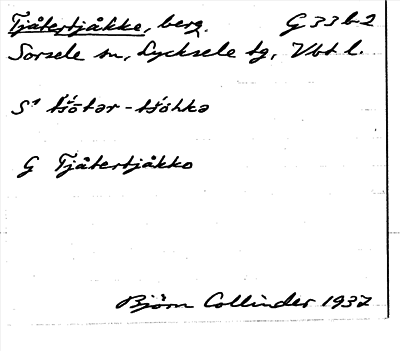 Tjåtertjåkke, berg. G 33 b 2
Sorsele sn, Lycksele tg, Vbt l.
G Tjåtertjåkko
Björn Collinder 1937